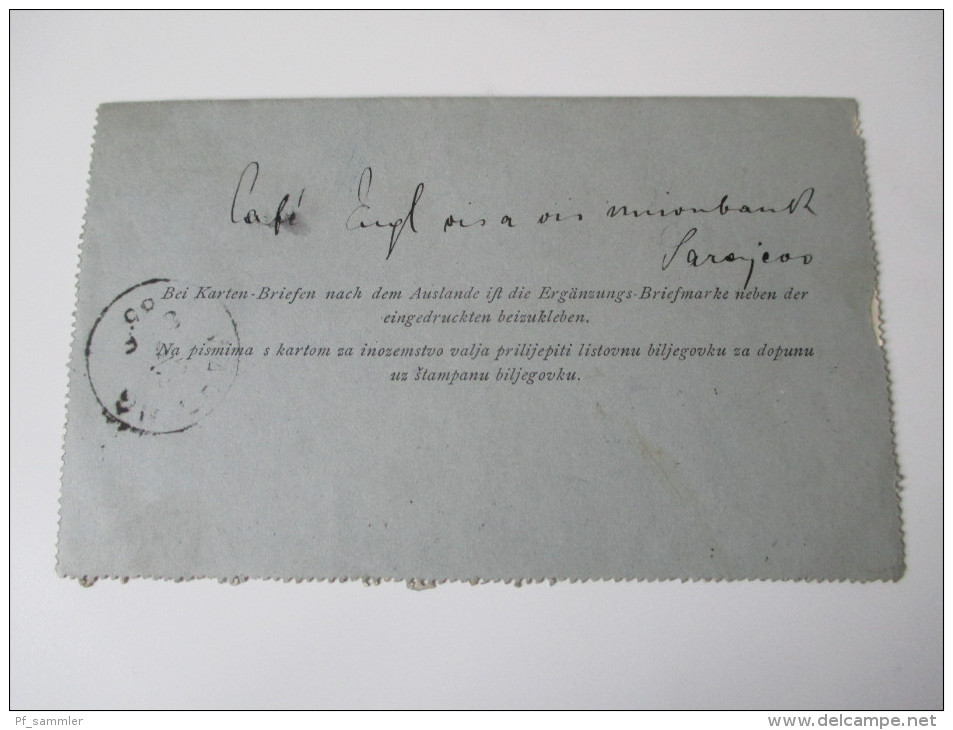 Café Engl vis a vis unionbank
Sarajevo
Bei Karten-Briefen nach dem Auslande iſt die Ergänzungs-Briefmarke neben der
eingedruckten beizukleben.
Na pismima s kartom za inozemstvo valja prilijepiti listovnu biljegovku za dopunu
uz štampanu biljegovku.
Pf_sammler
www.delcampe.net